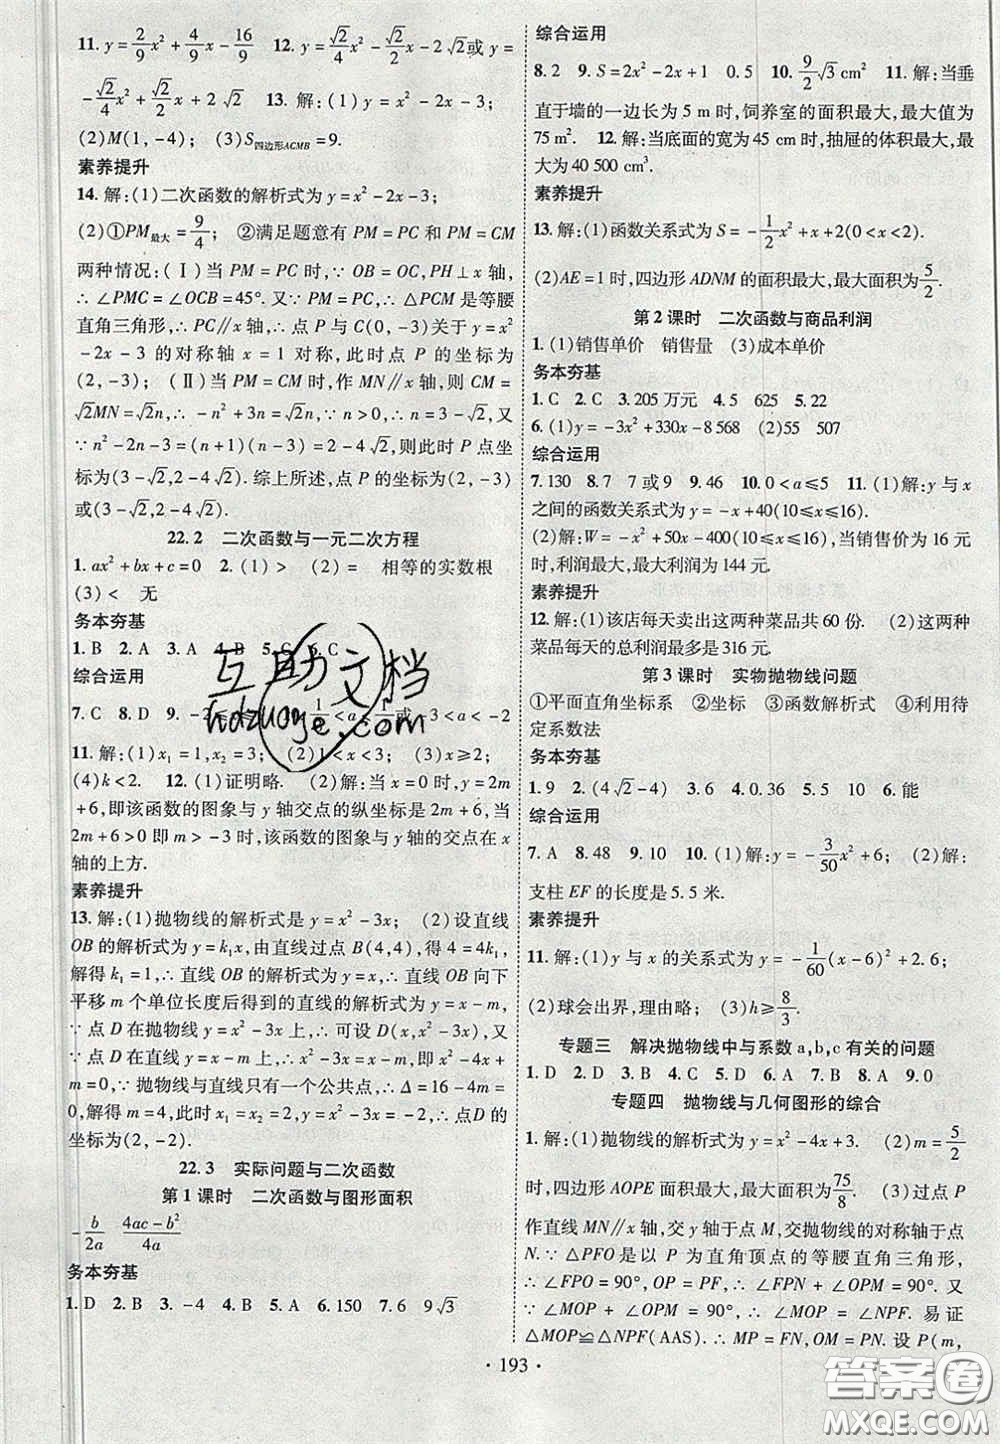 11. y=2/9x²+4/9x-16/9　12. y=√2/4x²-√2/2x-2√2或y=
-√2/4x²+√2/2x+2√2　13. 解：(1)y=x²-2x-3；
(2)M(1,-4)；(3)S四边形ACMB=9.
素养提升
14. 解：(1)二次函数的解析式为y=x²-2x-3；
(2)①PM最大=9/4；②满足题意有PM=PC和PM=CM
两种情况：(Ⅰ)当PM=PC时，∵OB=OC,PH⊥x轴，
∴∠PMC=∠OCB=45°. 又∵PM=PC,∴△PCM是等腰
直角三角形，∴PC∥x轴，∴点P与C(0,-3)关于y=x²
-2x-3的对称轴x=1对称，此时点P的坐标为
(2,-3)；(Ⅱ)当PM=CM时，作MN∥x轴，则CM=
√2MN=√2n,∴-n²+3n=√2n,∵n>0,∴n=3-√2,又
∵n²-2n-3=(n+1)(n-3)=2-4√2,则此时P点坐
标为(3-√2,2-4√2). 综上所述，点P的坐标为(2,-3)
或(3-√2,2-4√2).
22.2　二次函数与一元二次方程
1. ax²+bx+c=0　2. (1)>　(2)=　相等的实数根
(3)<　无
务本夯基
1. B　2. A　3. A　4. B　5. C　6. C
综合运用
7. C　8. D　9. 或-3<a<-2
11. 解：(1)x₁=1,x₂=3；(2)1<x<3；(3)x≥2；
(4)k<2.　12. (1)证明略.　(2)解：当x=0时，y=2m
+6,即该函数的图象与y轴交点的纵坐标是2m+6,当
2m+6>0即m>-3时，该函数的图象与y轴的交点在x
轴的上方.
素养提升
13. 解：(1)抛物线的解析式是y=x²-3x；(2)设直线
OB的解析式为y=k₁x,由直线过点B(4,4),得4=4k₁,
解得k₁=1,∴直线OB的解析式为y=x,∴直线OB向下
平移m个单位长度后得到的直线的解析式为y=x-m,
∵点D在抛物线y=x²-3x上，∴可设D(x,x²-3x),又
∵点D在直线y=x-m上，∴x²-3x=x-m,即x²-4x+m
=0,∵抛物线与直线只有一个公共点，∴Δ=16-4m=
0,解得m=4,此时x₁=x₂=2,y=x²-3x=-2,∴点D的
坐标为(2,-2).
22.3　实际问题与二次函数
第1课时　二次函数与图形面积
-b/2a　(4ac-b²)/4a
务本夯基
1. D　2. B　3. -4　4. B　5. A　6. 150　7. 6　9√3
综合运用
8. 2　9. S=2x²-2x+1　0.5　10. 9/2√3 cm²　11. 解：当垂
直于墙的一边长为5 m时，饲养室的面积最大，最大值为
75 m².　12. 解：当底面的宽为45 cm时，抽屉的体积最大，最
大为40 500 cm³.
素养提升
13. 解：(1)函数关系式为S=-1/2x²+x+2(0<x<2).
(2)AE=1时，四边形ADNM的面积最大，最大面积为5/2.
第2课时　二次函数与商品利润
1. (1)销售单价　销售量　(3)成本单价
务本夯基
1. C　2. C　3. 205万元　4. 5　625　5. 22
6. (1)y=-3x²+330x-8 568　(2)55　507
综合运用
7. 130　8. 7　7或9　9. 46　10. 0<a≤5　11. (1)解：y与x
之间的函数关系式为y=-x+40(10≤x≤16).
(2)解：W=-x²+50x-400(10≤x≤16),当销售价为16元
时，利润最大，最大利润为144元.
素养提升
12. 解：(1)该店每天卖出这两种菜品共60份.　(2)这两种
菜品每天的总利润最多是316元.
第3课时　实物抛物线问题
①平面直角坐标系　②坐标　③函数解析式　④利用待
定系数法
务本夯基
1. 9　2. (4√2-4)　3. 6　4. 0.36　5. 5　10　6. 能
综合运用
7. A　8. 48　9. 10　10. (1)解：y=-3/50x²+6；(2)解：
支柱EF的长度是5.5米.
素养提升
11. 解：(1)y与x的关系式为y=-1/60(x-6)²+2.6；
(2)球会出界，理由略；(3)h≥8/3.
专题三　解决抛物线中与系数a,b,c有关的问题
1. D　2. D　3. B　4. D　5. D　6. A　7. A　8. A　9. 0
专题四　抛物线与几何图形的综合
1. 解：(1)抛物线的解析式为y=x²-4x+3.　(2)m=5/2
时，四边形AOPE面积最大，最大值为75/8.　(3)过点P
作直线MN∥x轴，交y轴于点M,交抛物线的对称轴于点
N. ∵△PFO是以P为直角顶点的等腰直角三角形，
∴∠FPO=90°,OP=PF,∴∠FPN+∠OPM=90°. 又
∵∠MOP+∠OPM=90°,∴∠MOP=∠NPF. 易证
△MOP≌△NPF(AAS). ∴MP=FN,OM=PN. 设P(m,
·193·
互助文档
hdzuoye.com
答案圈
MXQE.COM